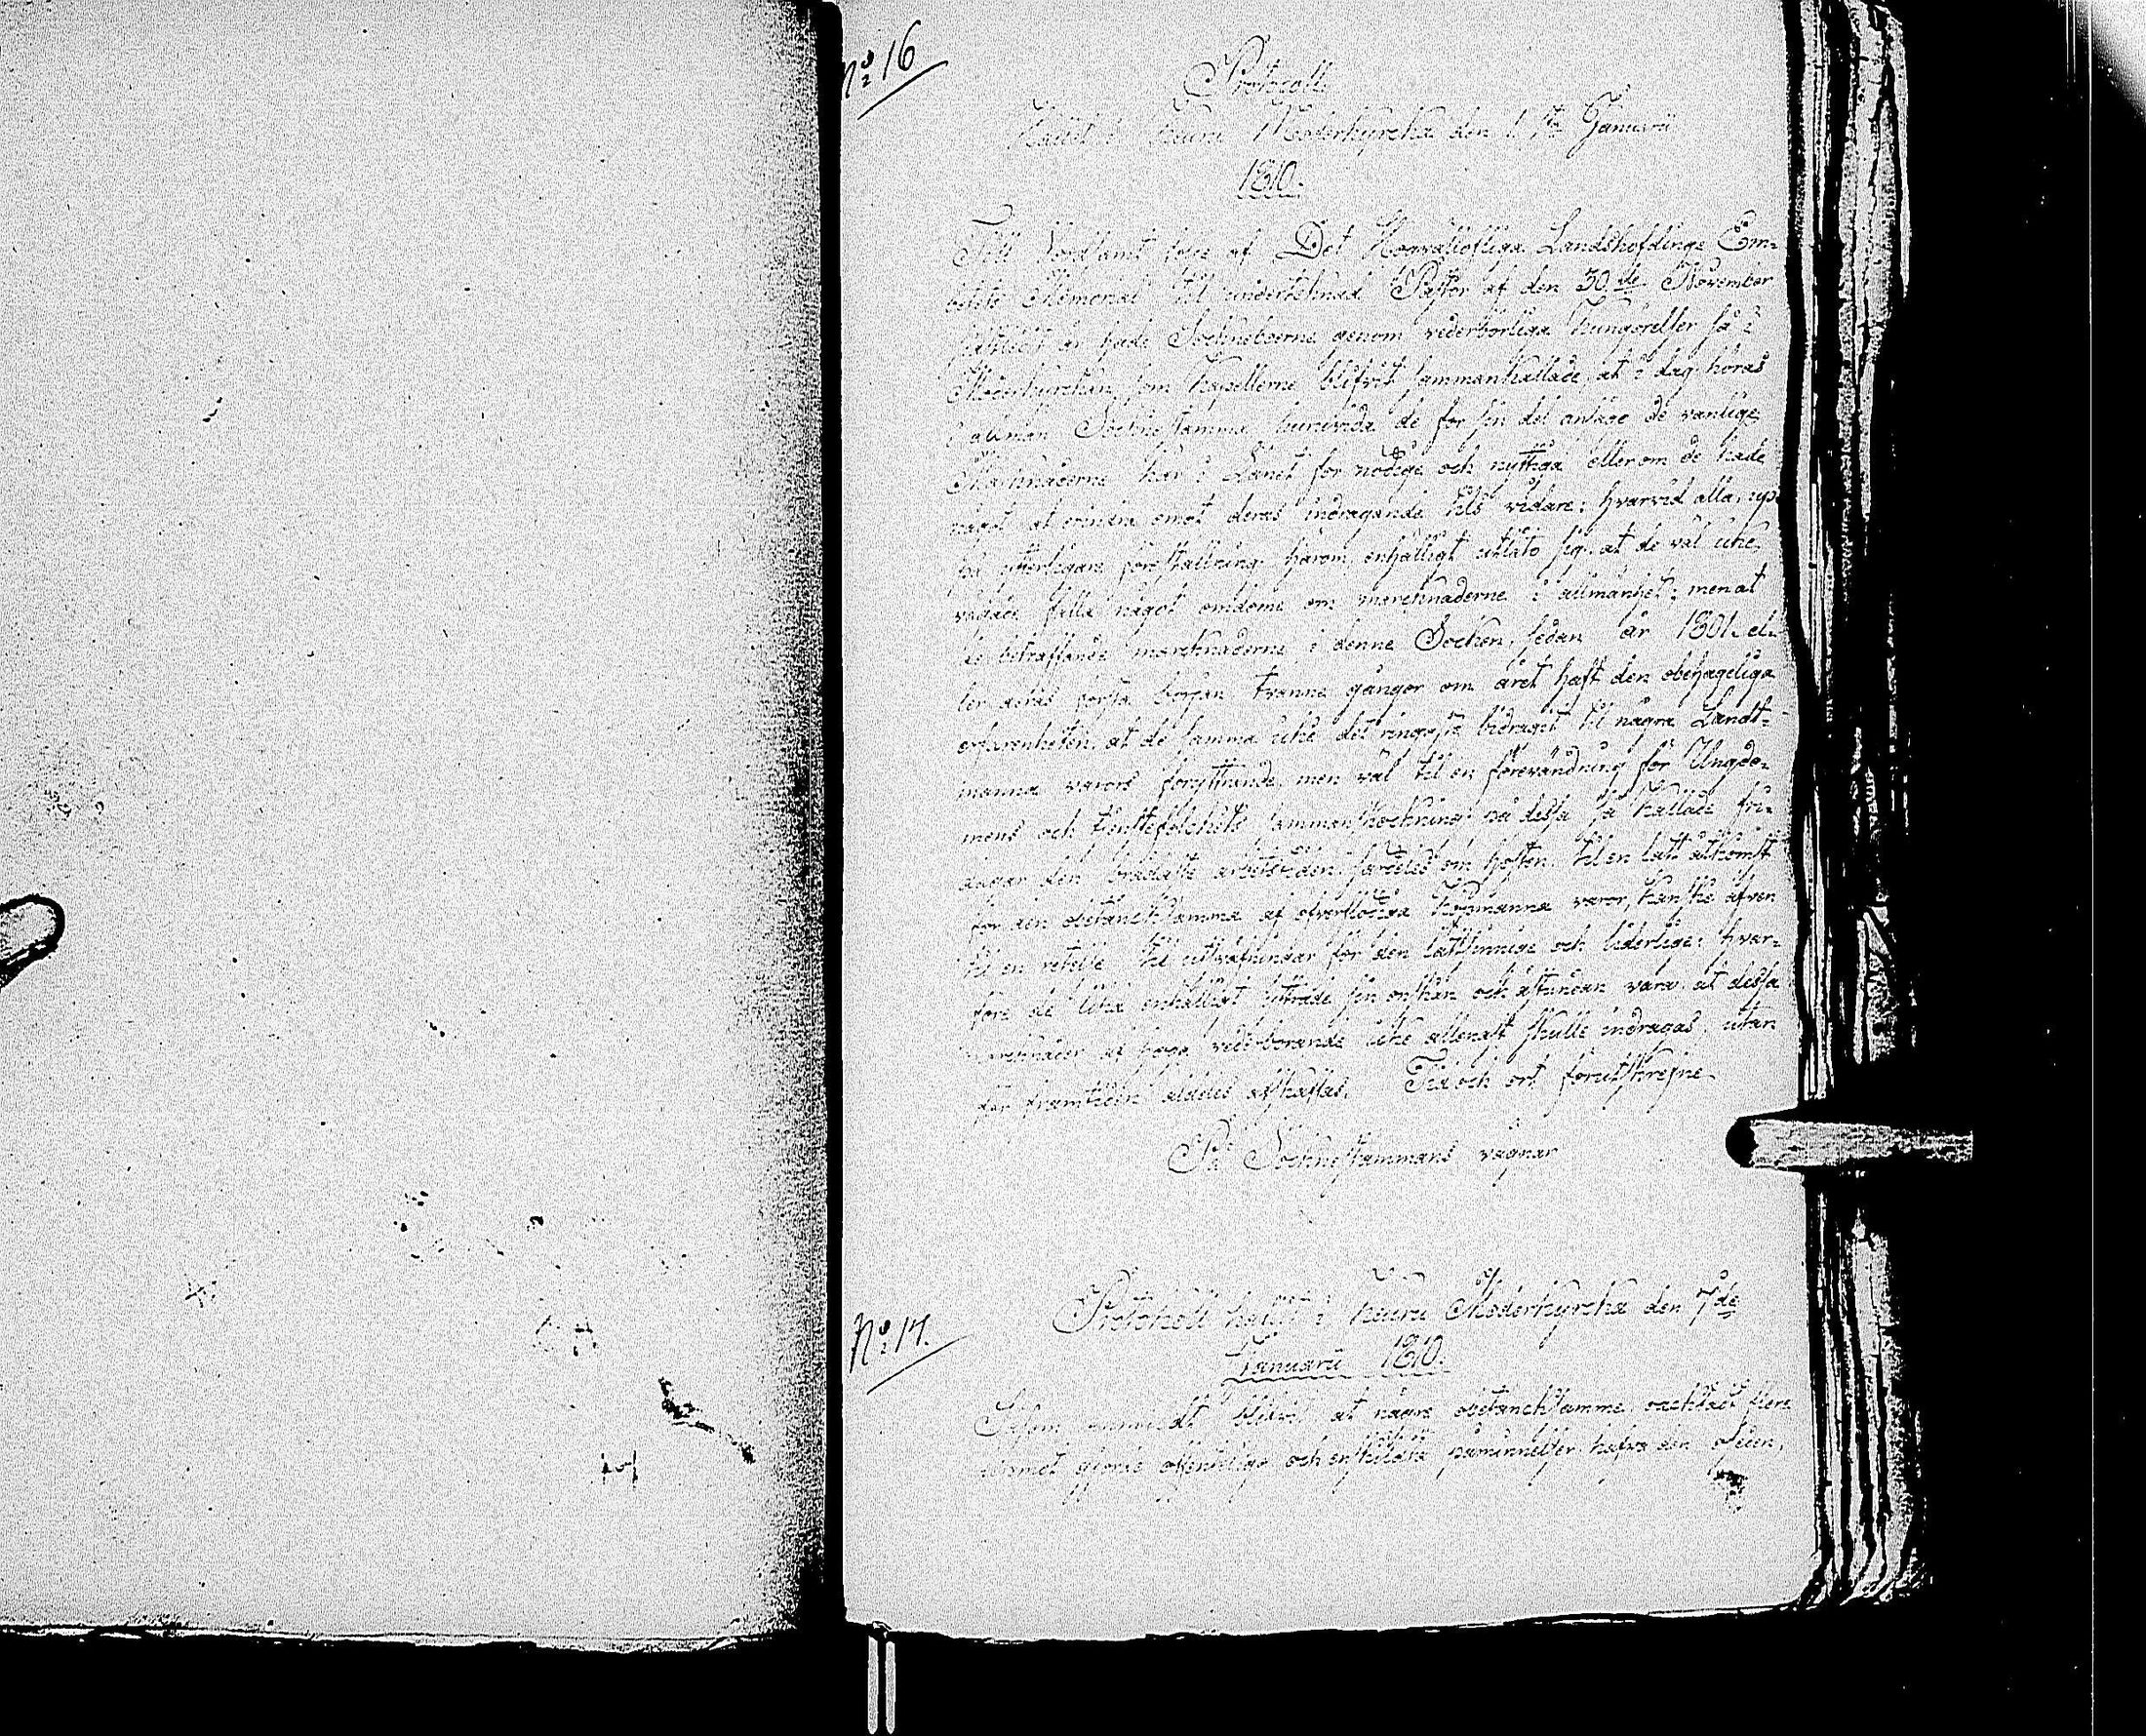 No 16
Protocoll
Hållit i Keuru Moderkyrcka den 1 sta Januarii
1810.
Till vördsamt följe af Det Högvällofliga Landshöfdinge Em-
betets Memorial til undertecknad Pastor af den 30 de November
sistledit år hade Sockneboerne genom vederbörliga kungörelser så i
Moderkyrckan som Kapellerne blifvit sammankallade, at i dag höras
i allmän Sockne stämma, huruvida de för sin del anságo de vanlige
Marcknaderne här i Länet för nödige och nyttiga eller om de hade
något at ärindra emot deras indragande tils vidare; hvarvid alla, up-
på ytterligare föreställning härom, enhälligt utläto sig, at de väl icke
vågade fälla något omdöme om marcknaderne i allmänhet; men at
de beträffande marcknaderne i denne Socken, sedan år 1801. el-
ler deras första början tvänne gånger om året haft den obehageliga
erfarenheten, at de samma icke det ringaste bidragit til några Landt-
manna varors föryttrande, men väl til en förevändning för Ungdo-
mens och tjenstefolckets sammanskockning på dessa så kallade fri-
dagar den brådaste arbetstiden, särdeles om hösten, til en lätt åtkomst
för den obetäncksamma af öfverflödiga Köpmanna varor, kanske äfven
til en retelse til utsväfningar för den lättsinnige och liderlige; hvar-
före de lika enhälligt yttrade sin önskan och åstundan vara, at dessa
marcknader af höga vederbörande icke allenast skulle indragas, utan
för framtiden aldeles afskaffas. Tid och ort förutskrefne
På Socknestämmans vägnar
No 17.
Protokoll hållit i Keuru Moderkyrcka den 7 de
Januarii 1810.
Såsom anmäldt blifvit at några obetäncksamme, oacktadt flere
häremot gjorde offentliga och enskildta påminnelser hafva den oseden,